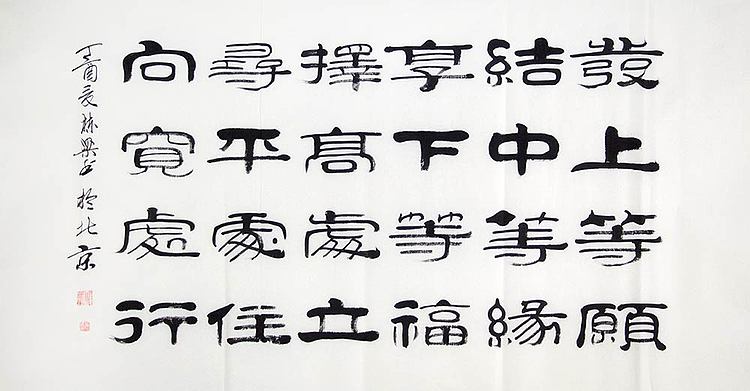 發上等願
結中等緣
享下等福
擇高處立
尋平處住
向寬處行
丁酉 於北京